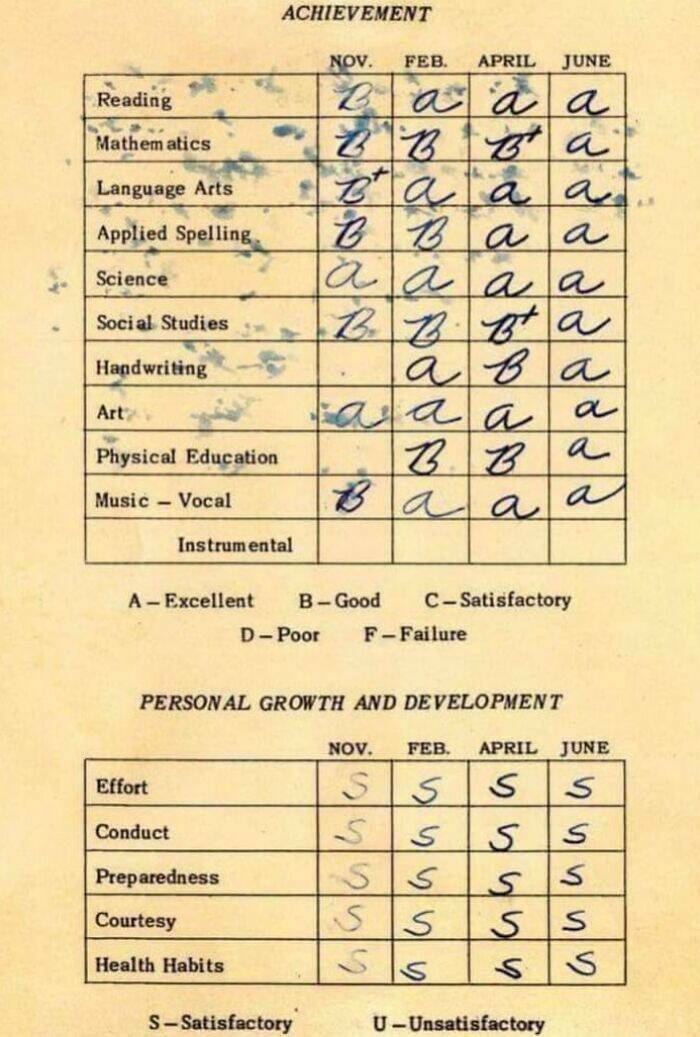 ACHIEVEMENT
NOV. FEB. APRIL JUNE
Reading B a a a
Mathematics B B B+ a
Language Arts B+ a a a
Applied Spelling B B a a
Science a a a a
Social Studies B B B+ a
Handwriting a B a
Art a a a a
Physical Education B B a
Music – Vocal B a a a
Instrumental
A – Excellent B – Good C – Satisfactory
D – Poor F – Failure
PERSONAL GROWTH AND DEVELOPMENT
NOV. FEB. APRIL JUNE
Effort S S S S
Conduct S S S S
Preparedness S S S S
Courtesy S S S S
Health Habits S S S S
S – Satisfactory U – Unsatisfactory